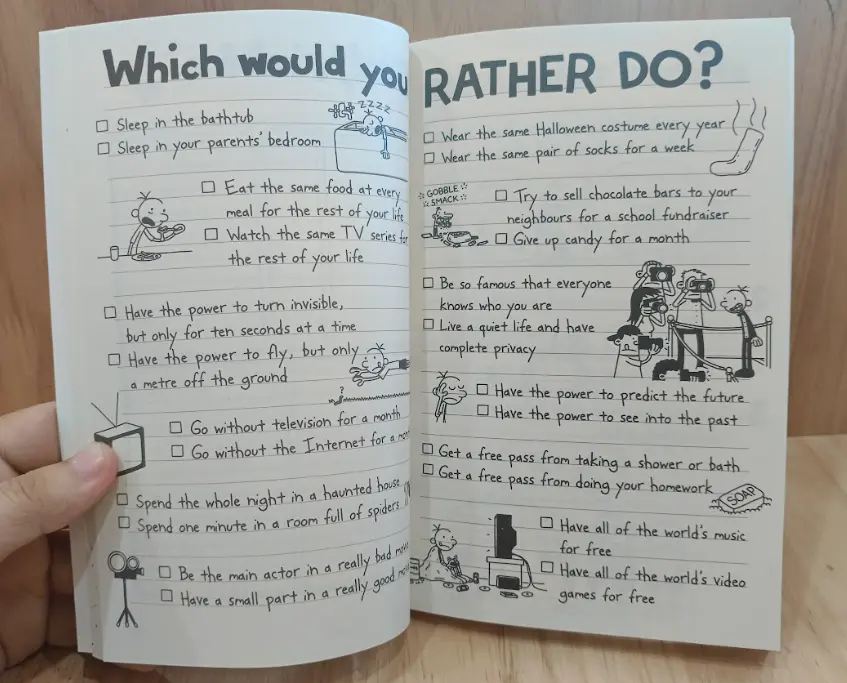 Which would you RATHER DO?
Sleep in the bathtub
Sleep in your parents' bedroom
ZZZZ
Eat the same food at every
meal for the rest of your life
Watch the same TV series for
the rest of your life
Have the power to turn invisible,
but only for ten seconds at a time
Have the power to fly, but only
a metre off the ground
Go without television for a month
Go without the Internet for a
Spend the whole night in a haunted house
Spend one minute in a room full of spiders
Be the main actor in a really bad
Have a small part in a really good
Wear the same Halloween costume every year
Wear the same pair of socks for a week
GOBBLE
SMACK
Try to sell chocolate bars to your
neighbours for a school fundraiser
Give up candy for a month
Be so famous that everyone
knows who you are
Live a quiet life and have
complete privacy
Have the power to predict the future
Have the power to see into the past
Get a free pass from taking a shower or bath
Get a free pass from doing your homework
SOAP
Have all of the world's music
for free
Have all of the world's video
games for free